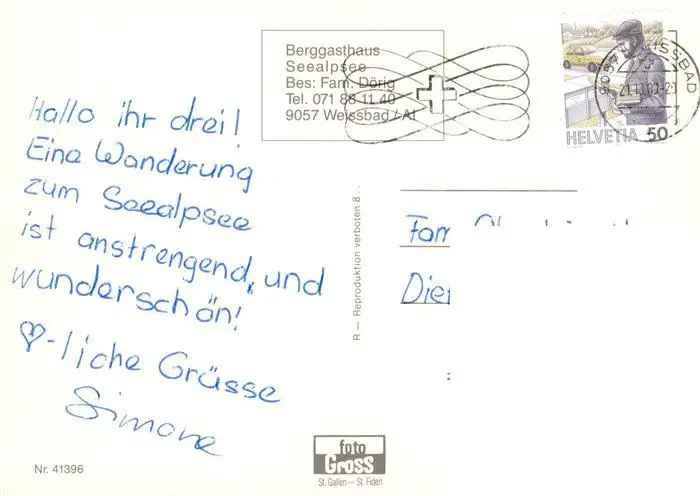 Berggasthaus
Seealpsee
Bes: Fam. Dörig
Tel. 071 88 11 40
9057 Weissbad / AI
HELVETIA 50
WEISSBAD
Hallo ihr drei!
Eine Wanderung
zum Seealpsee
ist anstrengend, und
wunderschön!
♡-liche Grüsse
Simone
R — Reproduktion verboten 8...
Fam
Nr. 41396
foto
Gross
St. Gallen — St. Fiden